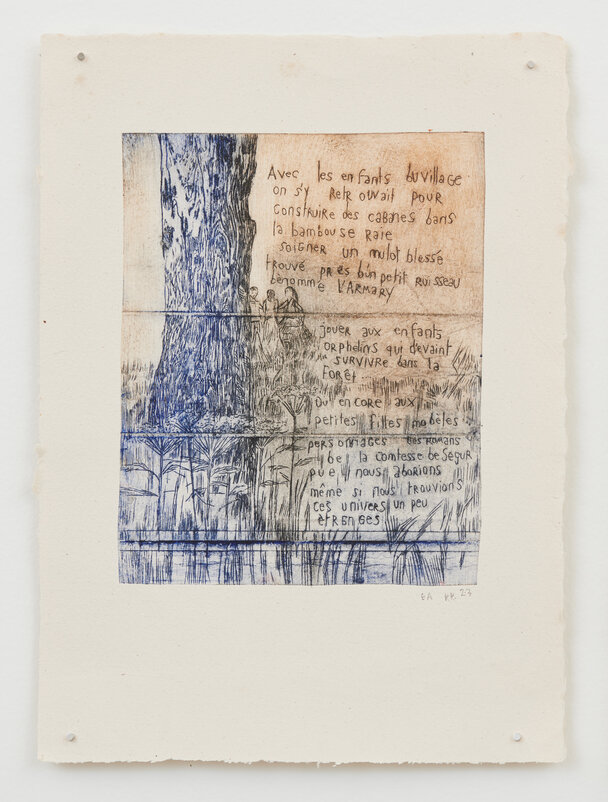 Avec les enfants du village
on s'y retrouvait pour
construire des cabanes dans
la bambouseraie
soigner un mulot blessé
trouvé près d'un petit ruisseau
dénommé L'ARMARY
jouer aux enfants
orphelins qui devaint
SURVIVRE dans la
Forêt
ou encore aux
petites filles modèles
personnages des romans
de la comtesse de Ségur
que nous adorions
même si nous trouvions
ces univers un peu
étranges
EA 23